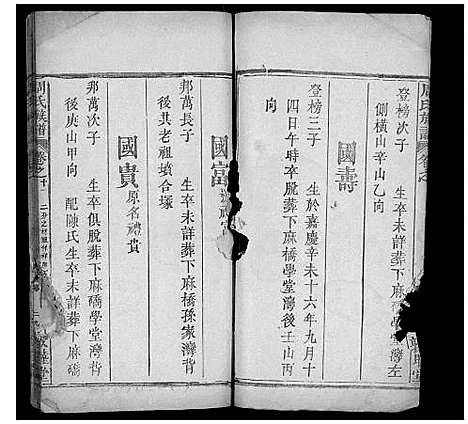 周氏族譜 卷之
登榜次子 生卒未詳葬下麻橋學堂灣左
側橫山辛山乙向
國壽
登榜三子 生於嘉慶辛未十六年九月十
四日午時卒脱葬下麻橋學堂灣後壬山丙
向
國富
邦萬長子 生卒未詳葬下麻橋孫家灣背
後其老祖墳合塚
國貴 原名禮貴
邦萬次子 生卒俱脱葬下麻橋學堂灣背
後庚山甲向 配陳氏生卒未詳葬下麻
周氏族譜 卷之